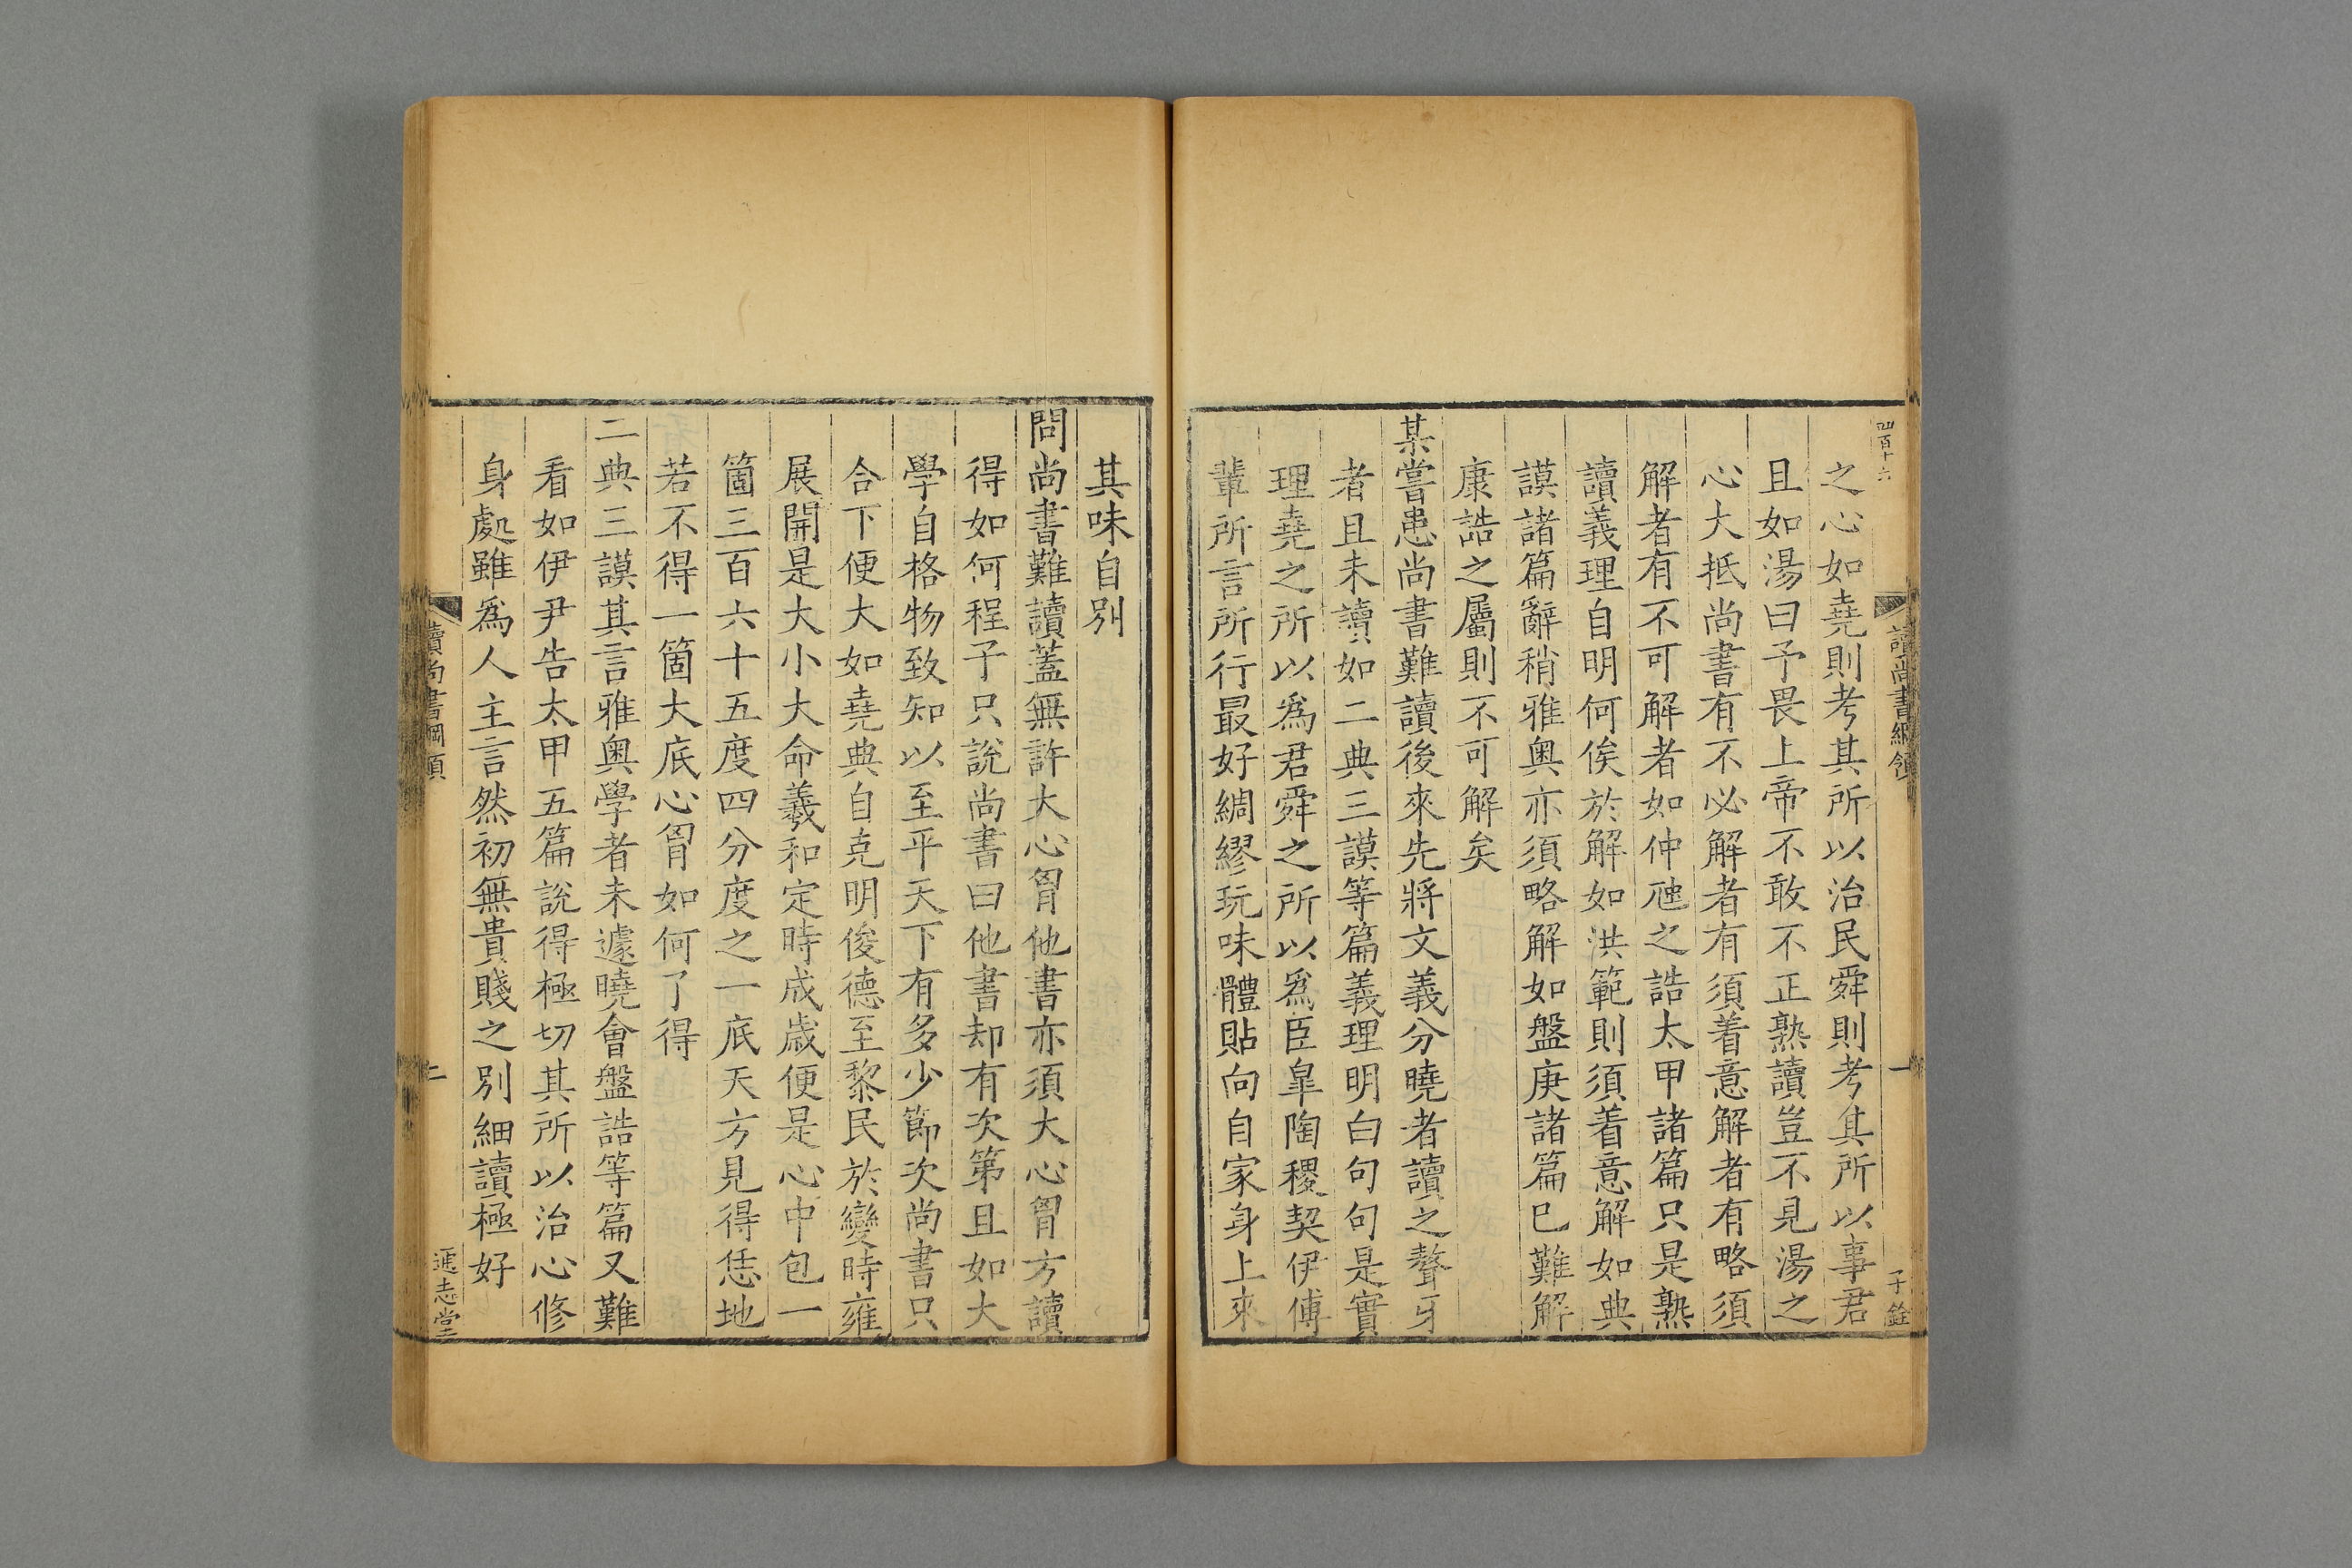 四百十六
讀尚書綱領
一
子銓
之心如堯則考其所以治民舜則考其所以事君
且如湯曰予畏上帝不敢不正熟讀豈不見湯之
心大抵尚書有不必解者有須着意解者有略須
解者有不可解者如仲虺之誥太甲諸篇只是熟
讀義理自明何俟於解如洪範則須着意解如典
謨諸篇辭稍雅奧亦須略解如盤庚諸篇巳難解
康誥之屬則不可解矣
某嘗患尚書難讀後來先將文義分曉者讀之聱牙
者且未讀如二典三謨等篇義理明白句句是實
理堯之所以爲君舜之所以爲臣皐陶稷契伊傅
輩所言所行最好綢繆玩味體貼向自家身上來
其味自別
問尚書難讀蓋無許大心胷他書亦須大心胷方讀
得如何程子只說尚書曰他書却有次第且如大
學自格物致知以至平天下有多少節次尚書只
合下便大如堯典自克明俊德至黎民於變時雍
展開是大小大命羲和定時成歲便是心中包一
箇三百六十五度四分度之一底天方見得恁地
若不得一箇大底心胷如何了得
二典三謨其言雅奧學者未遽曉會盤誥等篇又難
看如伊尹告太甲五篇說得極切其所以治心修
身處雖爲人主言然初無貴賤之別細讀極好
讀尚書綱領
二
通志堂